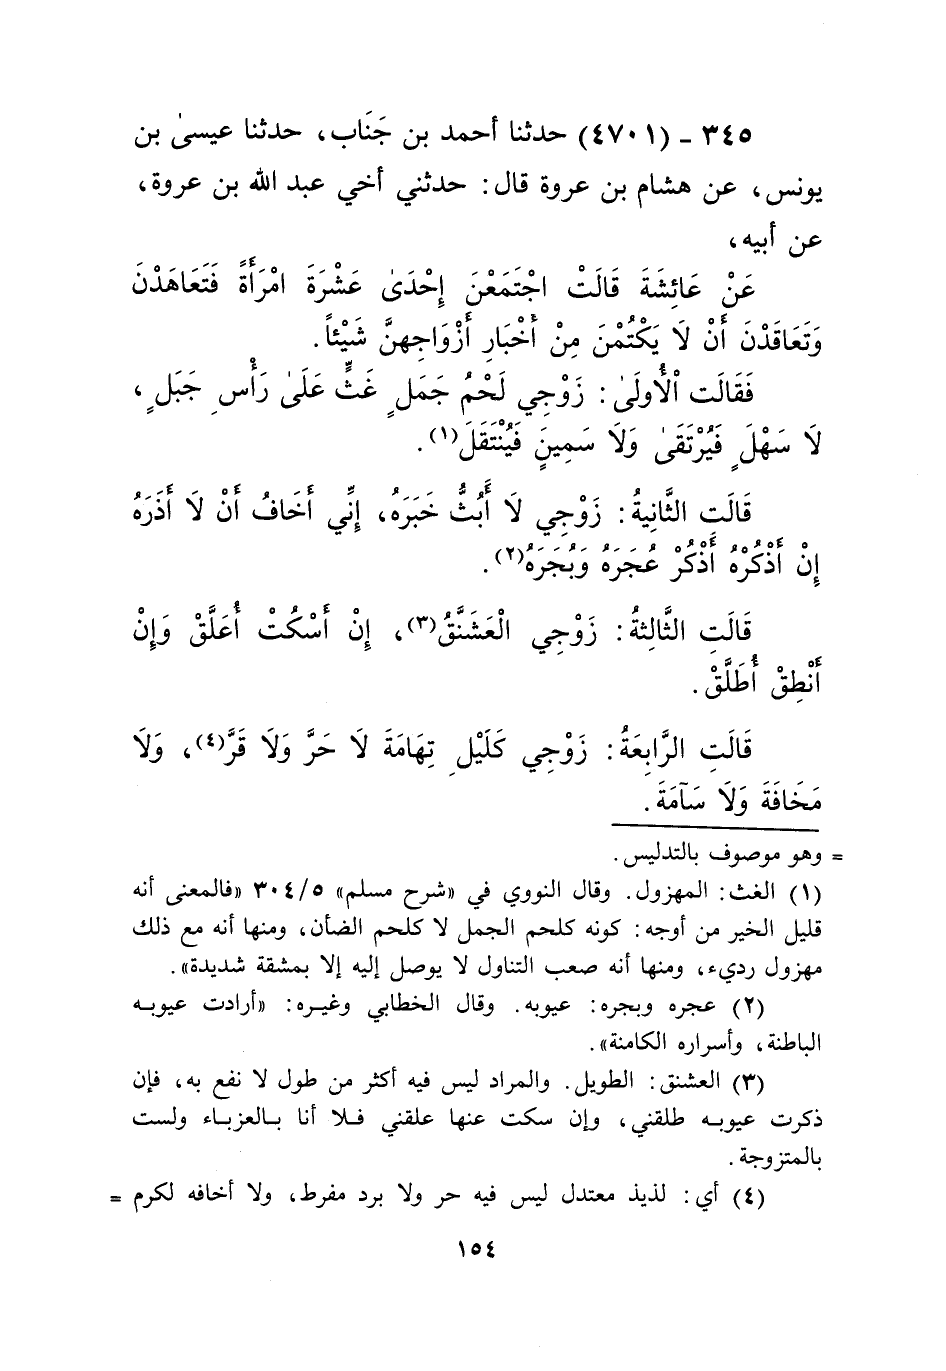 ٣٤٥ - (٤٧٠١) حدثنا أحمد بن جَنَاب، حدثنا عيسىٰ بن
يونس، عن هشام بن عروة قال: حدثني أخي عبد الله بن عروة،
عن أبيه،
عَنْ عَائِشَةَ قَالَتْ اجْتَمَعْنَ إِحْدَىٰ عَشْرَةَ امْرَأَةً فَتَعَاهَدْنَ
وَتَعَاقَدْنَ أَنْ لَا يَكْتُمْنَ مِنْ أَخْبَارِ أَزْوَاجِهِنَّ شَيْئاً.
فَقَالَت الْأُولَىٰ: زَوْجِي لَحْمُ جَمَلٍ غَثٍّ عَلَىٰ رَأْسِ جَبَلٍ،
لَا سَهْلٍ فَيُرْتَقَىٰ وَلَا سَمِينٍ فَيُنْتَقَلَ(١).
قَالَتِ الثَّانِيةُ: زَوْجِي لَا أَبُثُّ خَبَرَهُ، إِنِّي أَخَافُ أَنْ لَا أَذَرَهُ
إِنْ أَذْكُرْهُ أَذْكُرْ عُجَرَهُ وَبُجَرَهُ(٢).
قَالَتِ الثَّالِثةُ: زَوْجِي الْعَشَنَّقُ(٣)، إِنْ أَسْكُتْ أُعَلَّقْ وَإِنْ
أَنْطِقْ أُطَلَّقْ.
قَالَتِ الرَّابِعَةُ: زَوْجِي كَلَيْلِ تِهَامَةَ لَا حَرَّ وَلَا قَرَّ(٤)، وَلَا
مَخَافَةَ وَلَا سَآمَةَ.
= وهو موصوف بالتدليس.
(١) الغث: المهزول. وقال النووي في «شرح مسلم» ٣٠٤/٥ «فالمعنى أنه
قليل الخير من أوجه: كونه كلحم الجمل لا كلحم الضأن، ومنها أنه مع ذلك
مهزول رديء، ومنها أنه صعب التناول لا يوصل إليه إلا بمشقة شديدة».
(٢) عجره وبجره: عيوبه. وقال الخطابي وغيره: «أرادت عيوبه
الباطنة، وأسراره الكامنة».
(٣) العشنق: الطويل. والمراد ليس فيه أكثر من طول لا نفع به، فإن
ذكرت عيوبه طلقني، وإن سكت عنها علقني فلا أنا بالعزباء ولست
بالمتزوجة.
(٤) أي: لذيذ معتدل ليس فيه حر ولا برد مفرط، ولا أخافه لكرم =
١٥٤